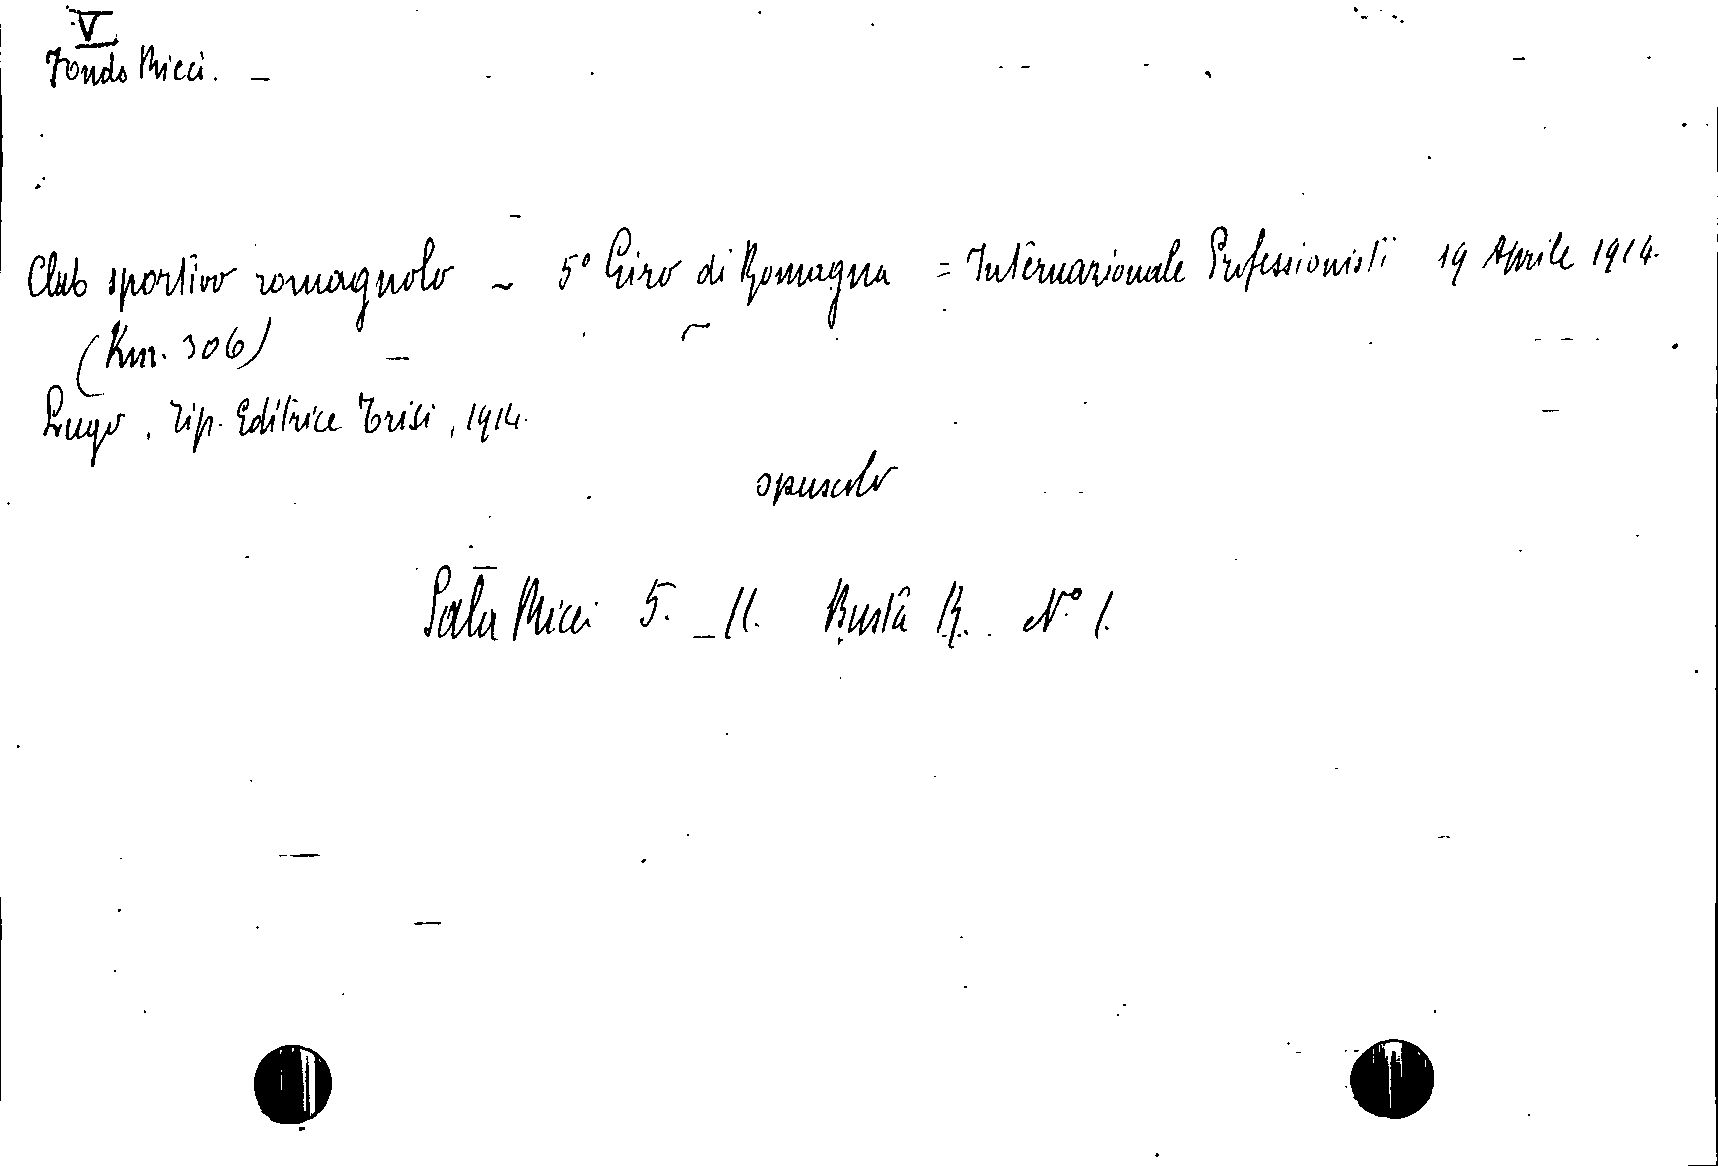 V
Fondo Ricci.
Club sportivo romagnolo - 5° Giro di Romagna = Internazionale Professionisti 19 Aprile 1914.
(Km. 306)
Lugo, Tip. Editrice Trisi, 1914.
opuscolo
Sala Ricci 5. - 11. Busta R. N.° 1.